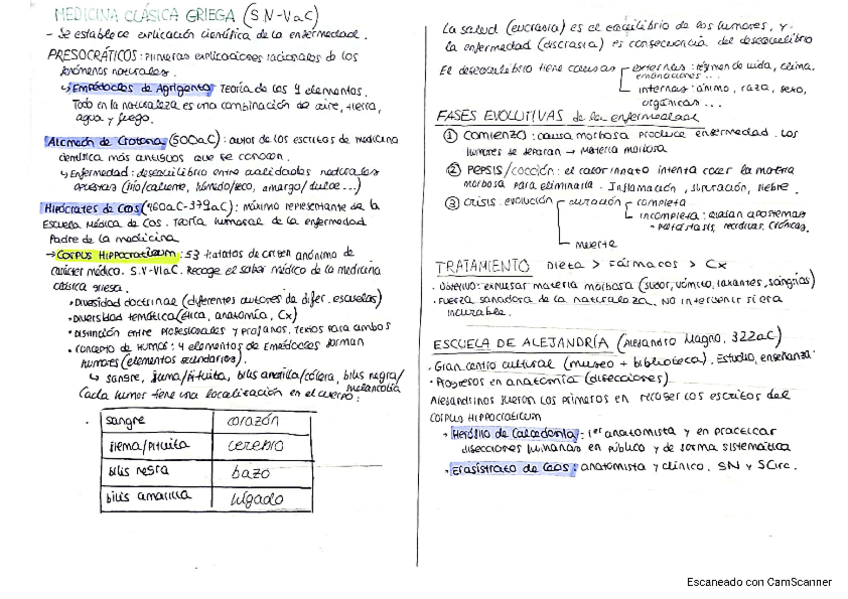 MEDICINA CLÁSICA GRIEGA (S.V-IV a.C)
- Se establece explicación científica de la enfermedad.
PRESOCRÁTICOS: primeras explicaciones racionales de los
fenómenos naturales.
↳ Empédocles de Agrigento: Teoría de los 4 elementos.
Todo en la naturaleza es una combinación de aire, tierra,
agua y fuego.
Alcmeón de Crotona (500aC): autor de los escritos de medicina
científica más antiguos que se conocen.
↳ Enfermedad: desequilibrio entre cualidades naturales
opuestas (frío/caliente, húmedo/seco, amargo/dulce...)
Hipócrates de Cos (460aC-379aC): máximo representante de la
Escuela Médica de Cos. Teoría humoral de la enfermedad
Padre de la medicina
→ Corpus Hippocraticum: 53 tratatos de origen anónimo de
carácter médico. S.V-VI a.C. Recoge el saber médico de la medicina
clásica griega.
• Diversidad doctrinal (diferentes autores de difer. escuelas)
• Diversidad temática (ética, anatomía, Cx)
• Distinción entre profesionales y profanos. Textos para ambos
• Concepto de humor: 4 elementos de Empédocles forman
humores (elementos secundarios).
↳ sangre, flema/pituita, bilis amarilla/cólera, bilis negra/
melancolía
Cada humor tiene una localización en el cuerpo:
sangre corazón
flema/pituita cerebro
bilis negra bazo
bilis amarilla hígado
La salud (eucrasia) es el equilibrio de los humores, y
la enfermedad (discrasia) es consecuencia del desequilibrio
El desequilibrio tiene causas externas: régimen de vida, clima,
emanaciones...
internas: ánimo, raza, sexo,
orgánicas...
FASES EVOLUTIVAS de la enfermedad
① COMIENZO: causa morbosa produce enfermedad. Los
humores se separan → materia morbosa
② PEPSIS/cocción: el calor innato intenta cocer la materia
morbosa para eliminarla. Inflamación, supuración, fiebre.
③ CRISIS. evolución curación completa
incompleta: quedan apostemas
→ metástasis, recidivas, crónicas.
muerte
TRATAMIENTO Dieta > Fármacos > Cx
• Objetivo: expulsar materia morbosa (sudor, vómito, laxantes, sangrías)
• Fuerza sanadora de la naturaleza. No intervenir si era
incurable.
ESCUELA DE ALEJANDRÍA (Alejandro Magno, 322aC)
• Gran centro cultural (museo + biblioteca). Estudio, enseñanza
• Progresos en anatomía (disecciones)
Alejandrinos fueron los primeros en recoger los escritos del
Corpus Hippocraticum
→ Herófilo de Calcedonia: 1er anatomista y en practicar
disecciones humanas en público y de forma sistemática
→ Erasístrato de Ceos: anatomista y clínico. SN y SCirc.
Escaneado con CamScanner